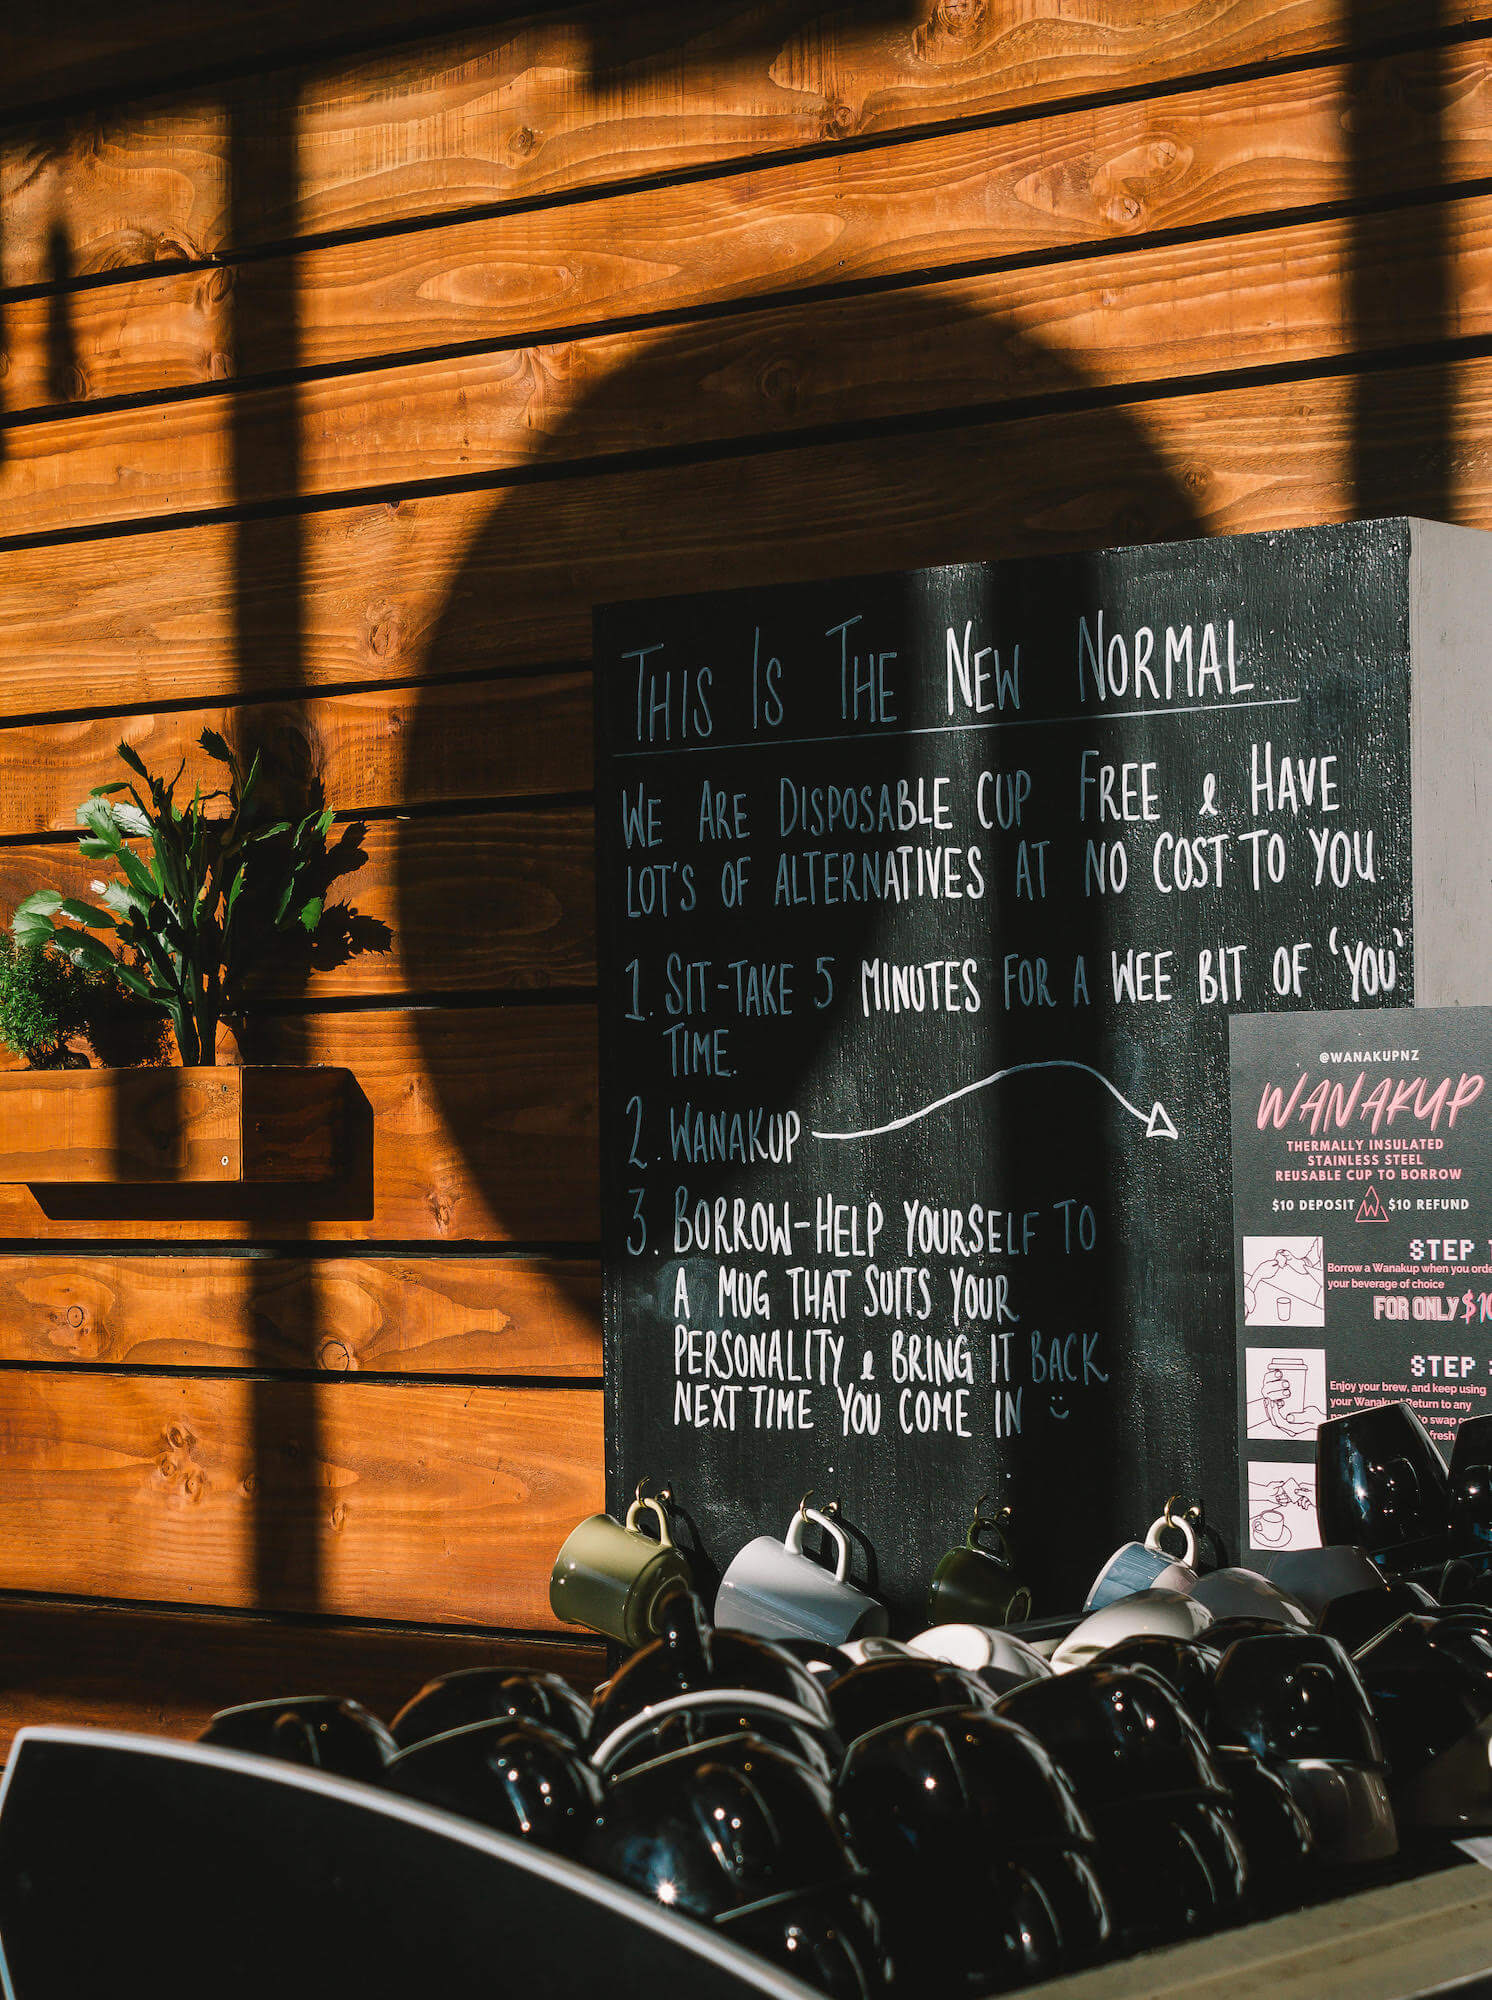 THIS IS THE NEW NORMAL.
WE ARE DISPOSABLE CUP FREE & HAVE
LOT'S OF ALTERNATIVES AT NO COST TO YOU.
1. SIT-TAKE 5 MINUTES FOR A WEE BIT OF 'YOU'
TIME.
2. WANAKUP
3. BORROW-HELP YOURSELF TO
A MUG THAT SUITS YOUR
PERSONALITY & BRING IT BACK
NEXT TIME YOU COME IN
@WANAKUPNZ
WANAKUP
THERMALLY INSULATED
STAINLESS STEEL
REUSABLE CUP TO BORROW
$10 DEPOSIT W $10 REFUND
STEP
Borrow a Wanakup when you
your beverage of choice
FOR ONLY $10
STEP
Enjoy your brew, and keep using
your Wanakup! Return to any
to swap
fresh